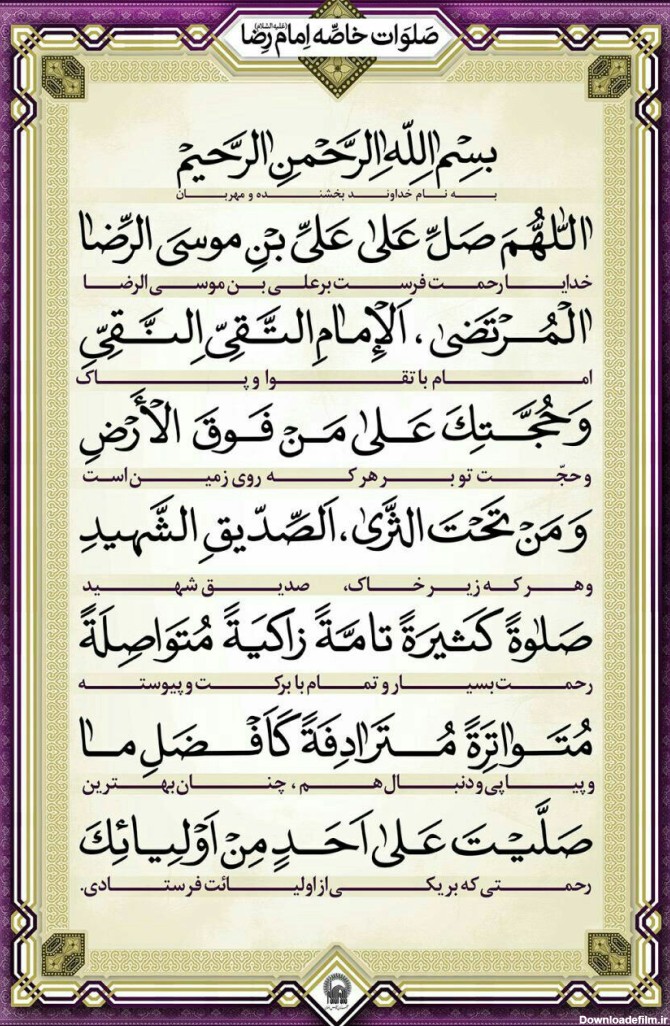 صلوات خاصه امام رضا (علیه السلام)
بِسْمِ اللهِ الرَّحْمنِ الرَّحیمْ
به نام خداوند بخشنده و مهربان
اَللّهُمَّ صَلِّ عَلی عَلیِّ بْنِ موسَی الرِّضا
خدایا رحمت فرست بر علی بن موسی الرضا
الْمُرْتَضی ، اَلْإِمامِ التَّقِیِّ النَّقِیِّ
امام با تقوا و پاک
وَحُجَّتِكَ عَلی مَنْ فَوقَ الْأَرْضِ
و حجّت تو بر هر که روی زمین است
وَ مَنْ تَحْتَ الثَّری، اَلصِّدّیقِ الشَّهیدِ
و هر که زیر خاک، صدیق شهید
صَلوةً كَثیرَةً تامَّةً زاكیَةً مُتَواصِلَةً
رحمت بسیار و تمام با برکت و پیوسته
مُتَواتِرَةً مُتَرادِفَةً كَاَفْضَلِ ما
و پیاپی و دنبال هم ، چنان بهترین
صَلَّیْتَ عَلی اَحَدٍ مِنْ اَوْلِیائِكَ
رحمتی که بر یکی از اولیائت فرستادی.
Downloadefilm.ir